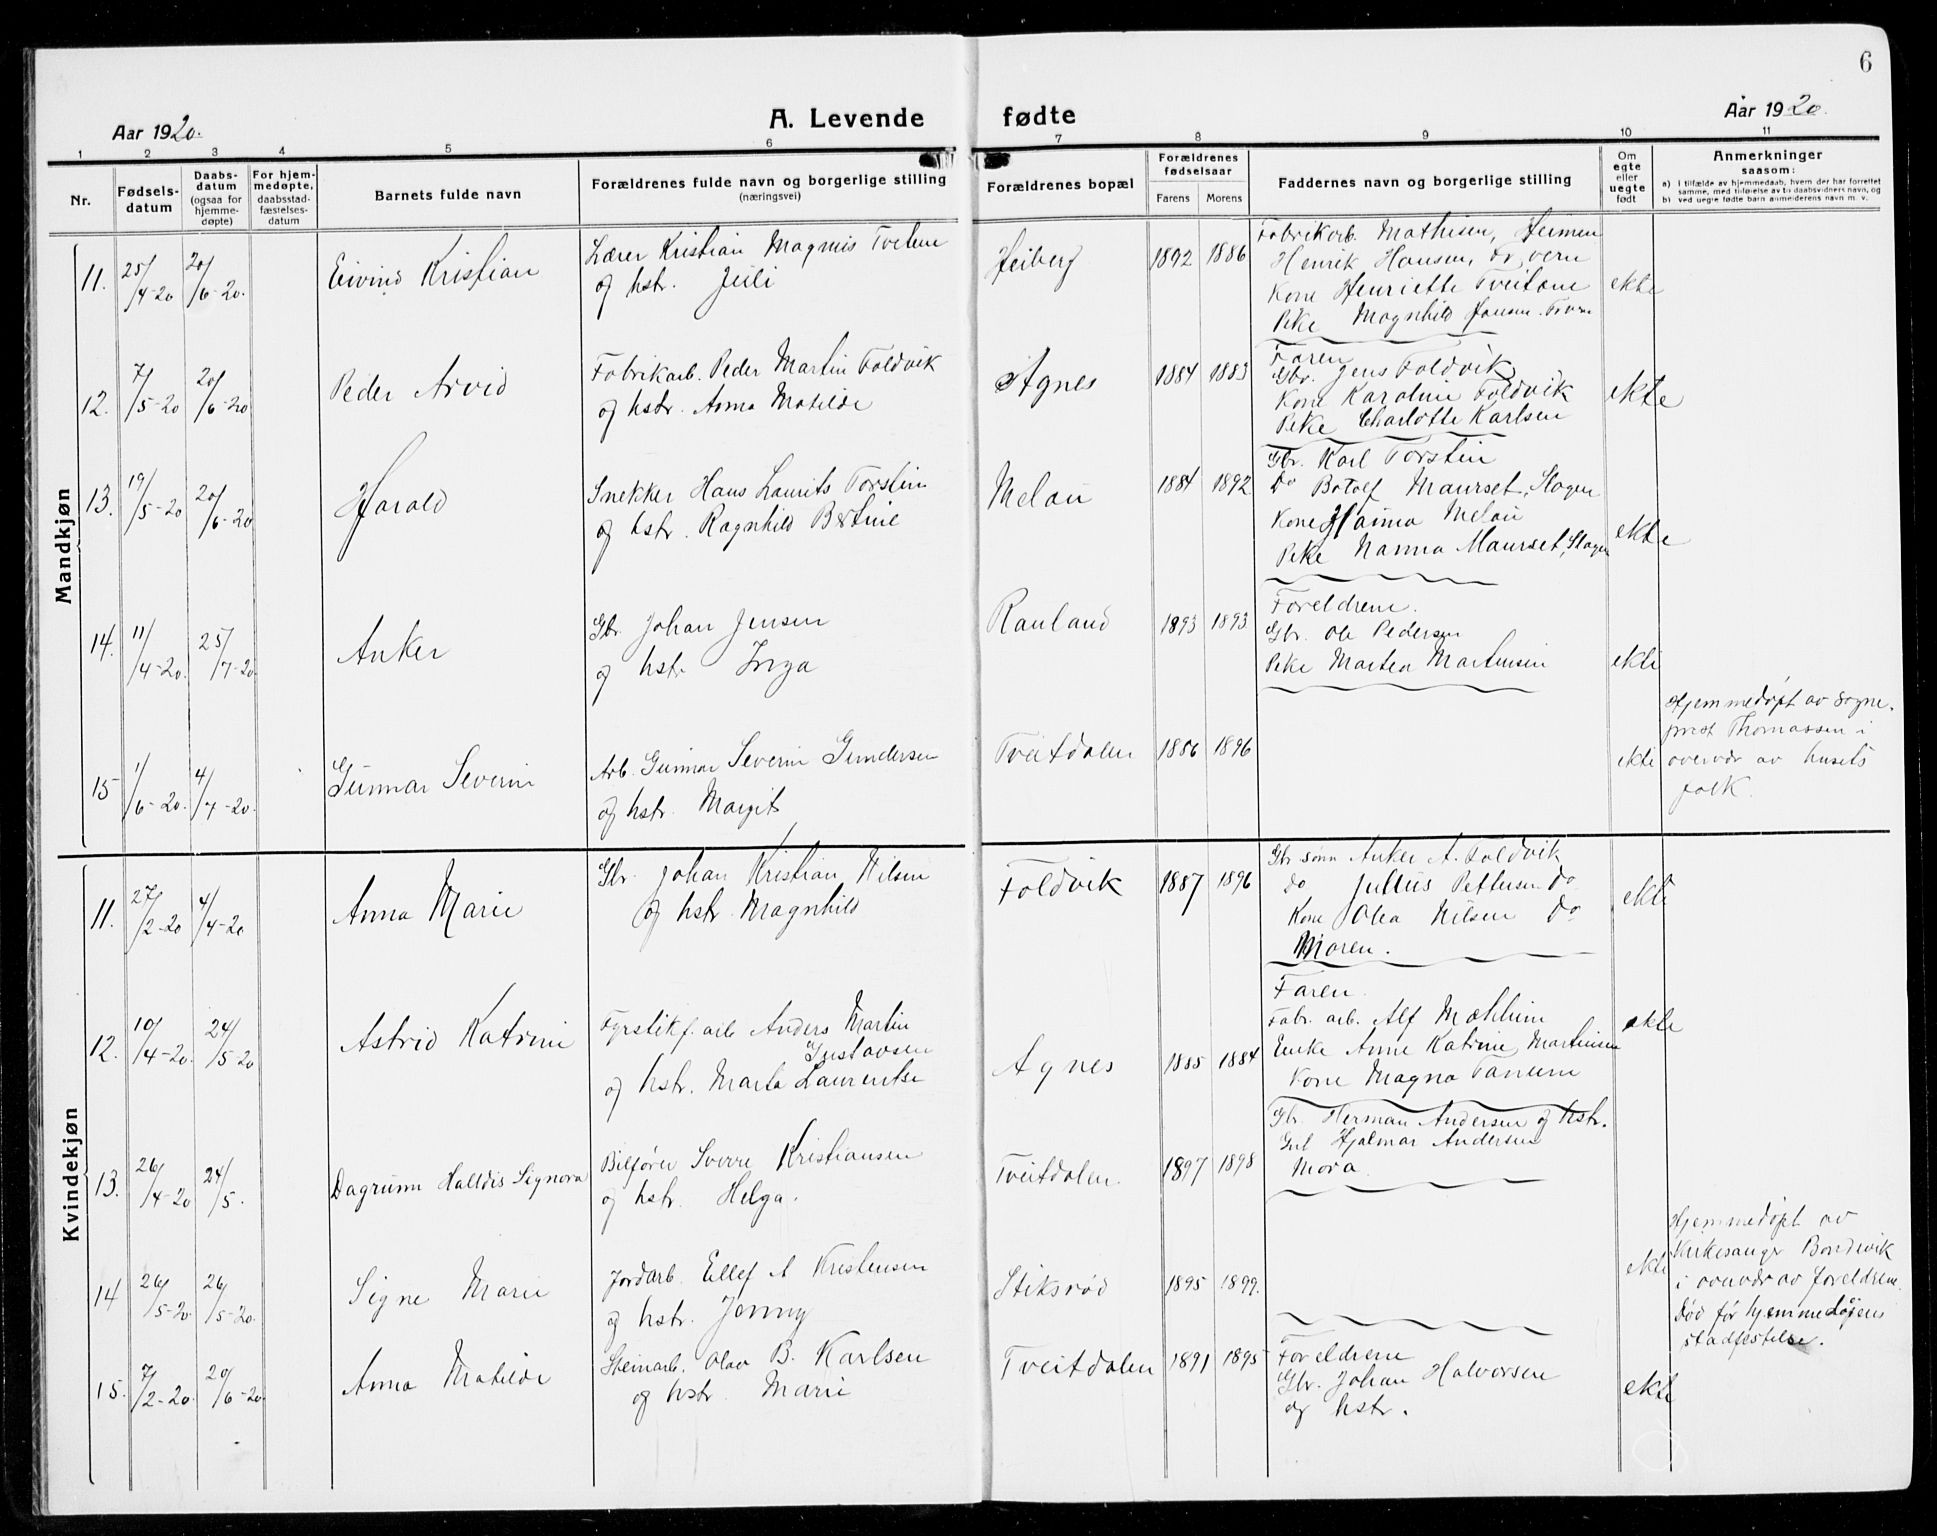 6
Aar 1920.
A. Levende fødte
Aar 1920.
1 2 3 4 5 6 7 8 9 10 11
Nr.
Fødsels-
datum
Daabs-
datum
(ogsaa for
hjemme-
døpte)
For hjem-
medøpte,
daabsstad-
fæstelses-
datum
Barnets fulde navn
Forældrenes fulde navn og borgerlige stilling
(næringsvei)
Forældrenes bopæl
Forældrenes
fødselsaar
Farens Morens
Faddernes navn og borgerlige stilling
Om
egte
eller
uegte
født
Anmerkninger
saasom:
a) i tilfælde av hjemmedaab, hvem der har forrettet
samme, med tilføielse av to daabsvidners navn, og
b) ved uegte fødte barn anmelderens navn m. v.
Mandkjøn
11. 25/4-20 20/6-20. Eivind Kristian
Lærer Kristian Magnus
og hstr.
Heiberg 1892 1886
Fabrikarb. Mathisen, Heimen
Henrik Hansen,
Kone Henriette Tveitane
Pike Magnhild Jansen
ekte
12. 7/5-20 20/6-20 Peder Arvid
Fabrikarb. Peder Martin Foldvik
og hstr. Anna Matilde
Agnes 1884 1883
Faren
Gbr. Jens Foldvik
Kone Karoline Foldvik
Pike Charlotte Karlsen
ekte
13. 19/5-20 20/6-20 Harald
Snekker Hans Laurits Torstin
og hstr. Ragnhild
Melau 1884 1892
Gbr. Karl Torstin
Do Botolf Maurset, Stagen
Kone Hanna Melau
Pike Nanna Maurset, Stagen
ekte
14. 11/4-20 25/7-20 Anker
Gbr. Johan Jensen
og hstr Inga
Rauland 1893 1893
Foreldrene.
Gbr. Ole Pedersen
Pike Martea Martinsen
ekte
15 1/6-20. 4/7-20. Gunnar Severin
Arb. Gunnar Severin Gundersen
og hstr. Margit
Tveitdalen 1886 1896
ekte
Hjemmedøpt av sogne-
prest Thomassen i
overvær av husets
folk.
Kvindekjøn
11. 27/2-20 4/4-20 Anna Marie
Gbr. Johan Kristian Nilsen
og hstr. Magnhild
Foldvik 1887 1896
Gbr sønn Anker A. Foldvik
do Julius Pettersen do
Kone Olea Nilsen do
Moren.
ekte
12. 10/4-20. 24/5-20 Astrid Katrine
Fyrstikf. arb Anders Martin
Gustavsen
og hstr. Marta
Agnes 1885 1884
Faren.
Fabr. arb. Alf Mæhlum
Enke Anne Katrine Martinsen
Kone Magna Tanum
ekte
13. 26/4-20 24/5. Dagrunn Halldis Signora
Bilfører Sverre Kristiansen
og hstr. Helga.
Tveitdalen. 1897 1898
Gbr. Herman Andersen og hstr.
Hjalmar Andersen
Mora.
14 26/5-20. 26/5-20. Signe Marie
Jordarb. Ellef A Kristensen
og hstr. Jenny
Stiksrød 1895 1899.
ekte
Hjemmedøpt av
Kirkesanger Bondevik
i overvær av foreldrene.
Død før hjemmedåpens
stadfestelse.
15. 7/2-20. 20/6-20. Anna Matilde
Steinarb. Olav B. Karlsen
og hstr. Marie
Tveitdalen 1891 1895
Foreldrene
Gbr. Johan Halvorsen
og hstr.
ekte